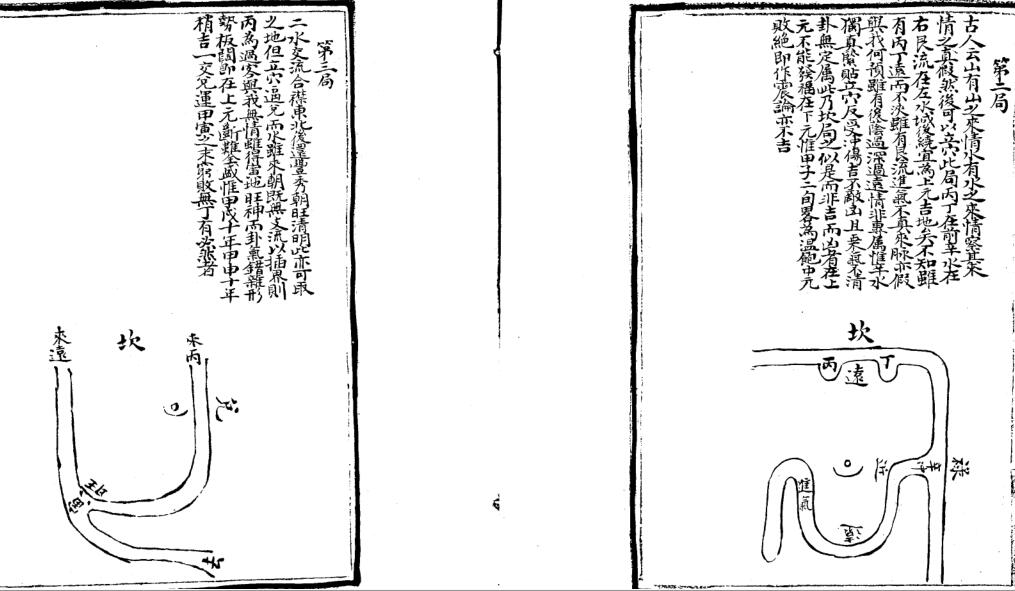 第二局
古人云山有山之來情水有水之來情察其來
情之真假然後可以立穴此局丙丁在前辛水在
右艮流在左水城後繞宜為上元吉地矣不知雖
有丙丁遠而不決雖有艮流進氣不真來脉亦假
與我何預雖有後陰過深過遠情非專属惟辛水
獨真緊貼立穴反受冲傷吉不敵凶且乗氣不清
卦無定属此乃坎局之似是而非吉而凶者在上
元不能發福在下元惟甲子二旬畧為温飽中元
敗絕即作震論亦不吉
坎
丙
丁
遠
辛
近
進氣
遠
第三局
二水交流合襟東北後選豐秀朝旺清明此亦可取
之地但立穴逼兑而水雖來朝既無支流以插界則
丙為過客與我無情雖得當地旺神而卦氣錯雜形
勢板闊即在上元斷難全盛惟甲戌十年甲申十年
稍吉一交兄運甲寅之末窮敗無丁有必然者
來遠
坎
來丙
兑